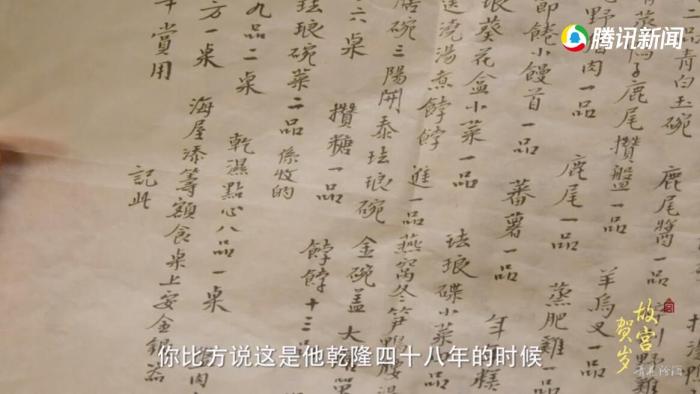 腾讯新闻
二品青白玉碗 鹿尾醬一品
鴿子鹿尾攢盤一品
肉一品 鹿尾一品 羊烏叉一品
小饅首一品 蕃薯一品 蒸肥雞一品
琅葵花盒小菜一品 年年糕
送澆湯煮餑餑 進一品 琺琅碟小菜
碗三陽開泰琺琅碗 一品燕窩冬笋鴨腰湯
六桌 攢糖一品 金碗蓋大
琺琅碗菜二品係收的 餑餑十三品
九品二桌 乾濕點心八品一桌
方一桌 海屋添籌額食桌上安金銀器
賞用 記此
故宫
贺岁
你比方说这是他乾隆四十八年的时候